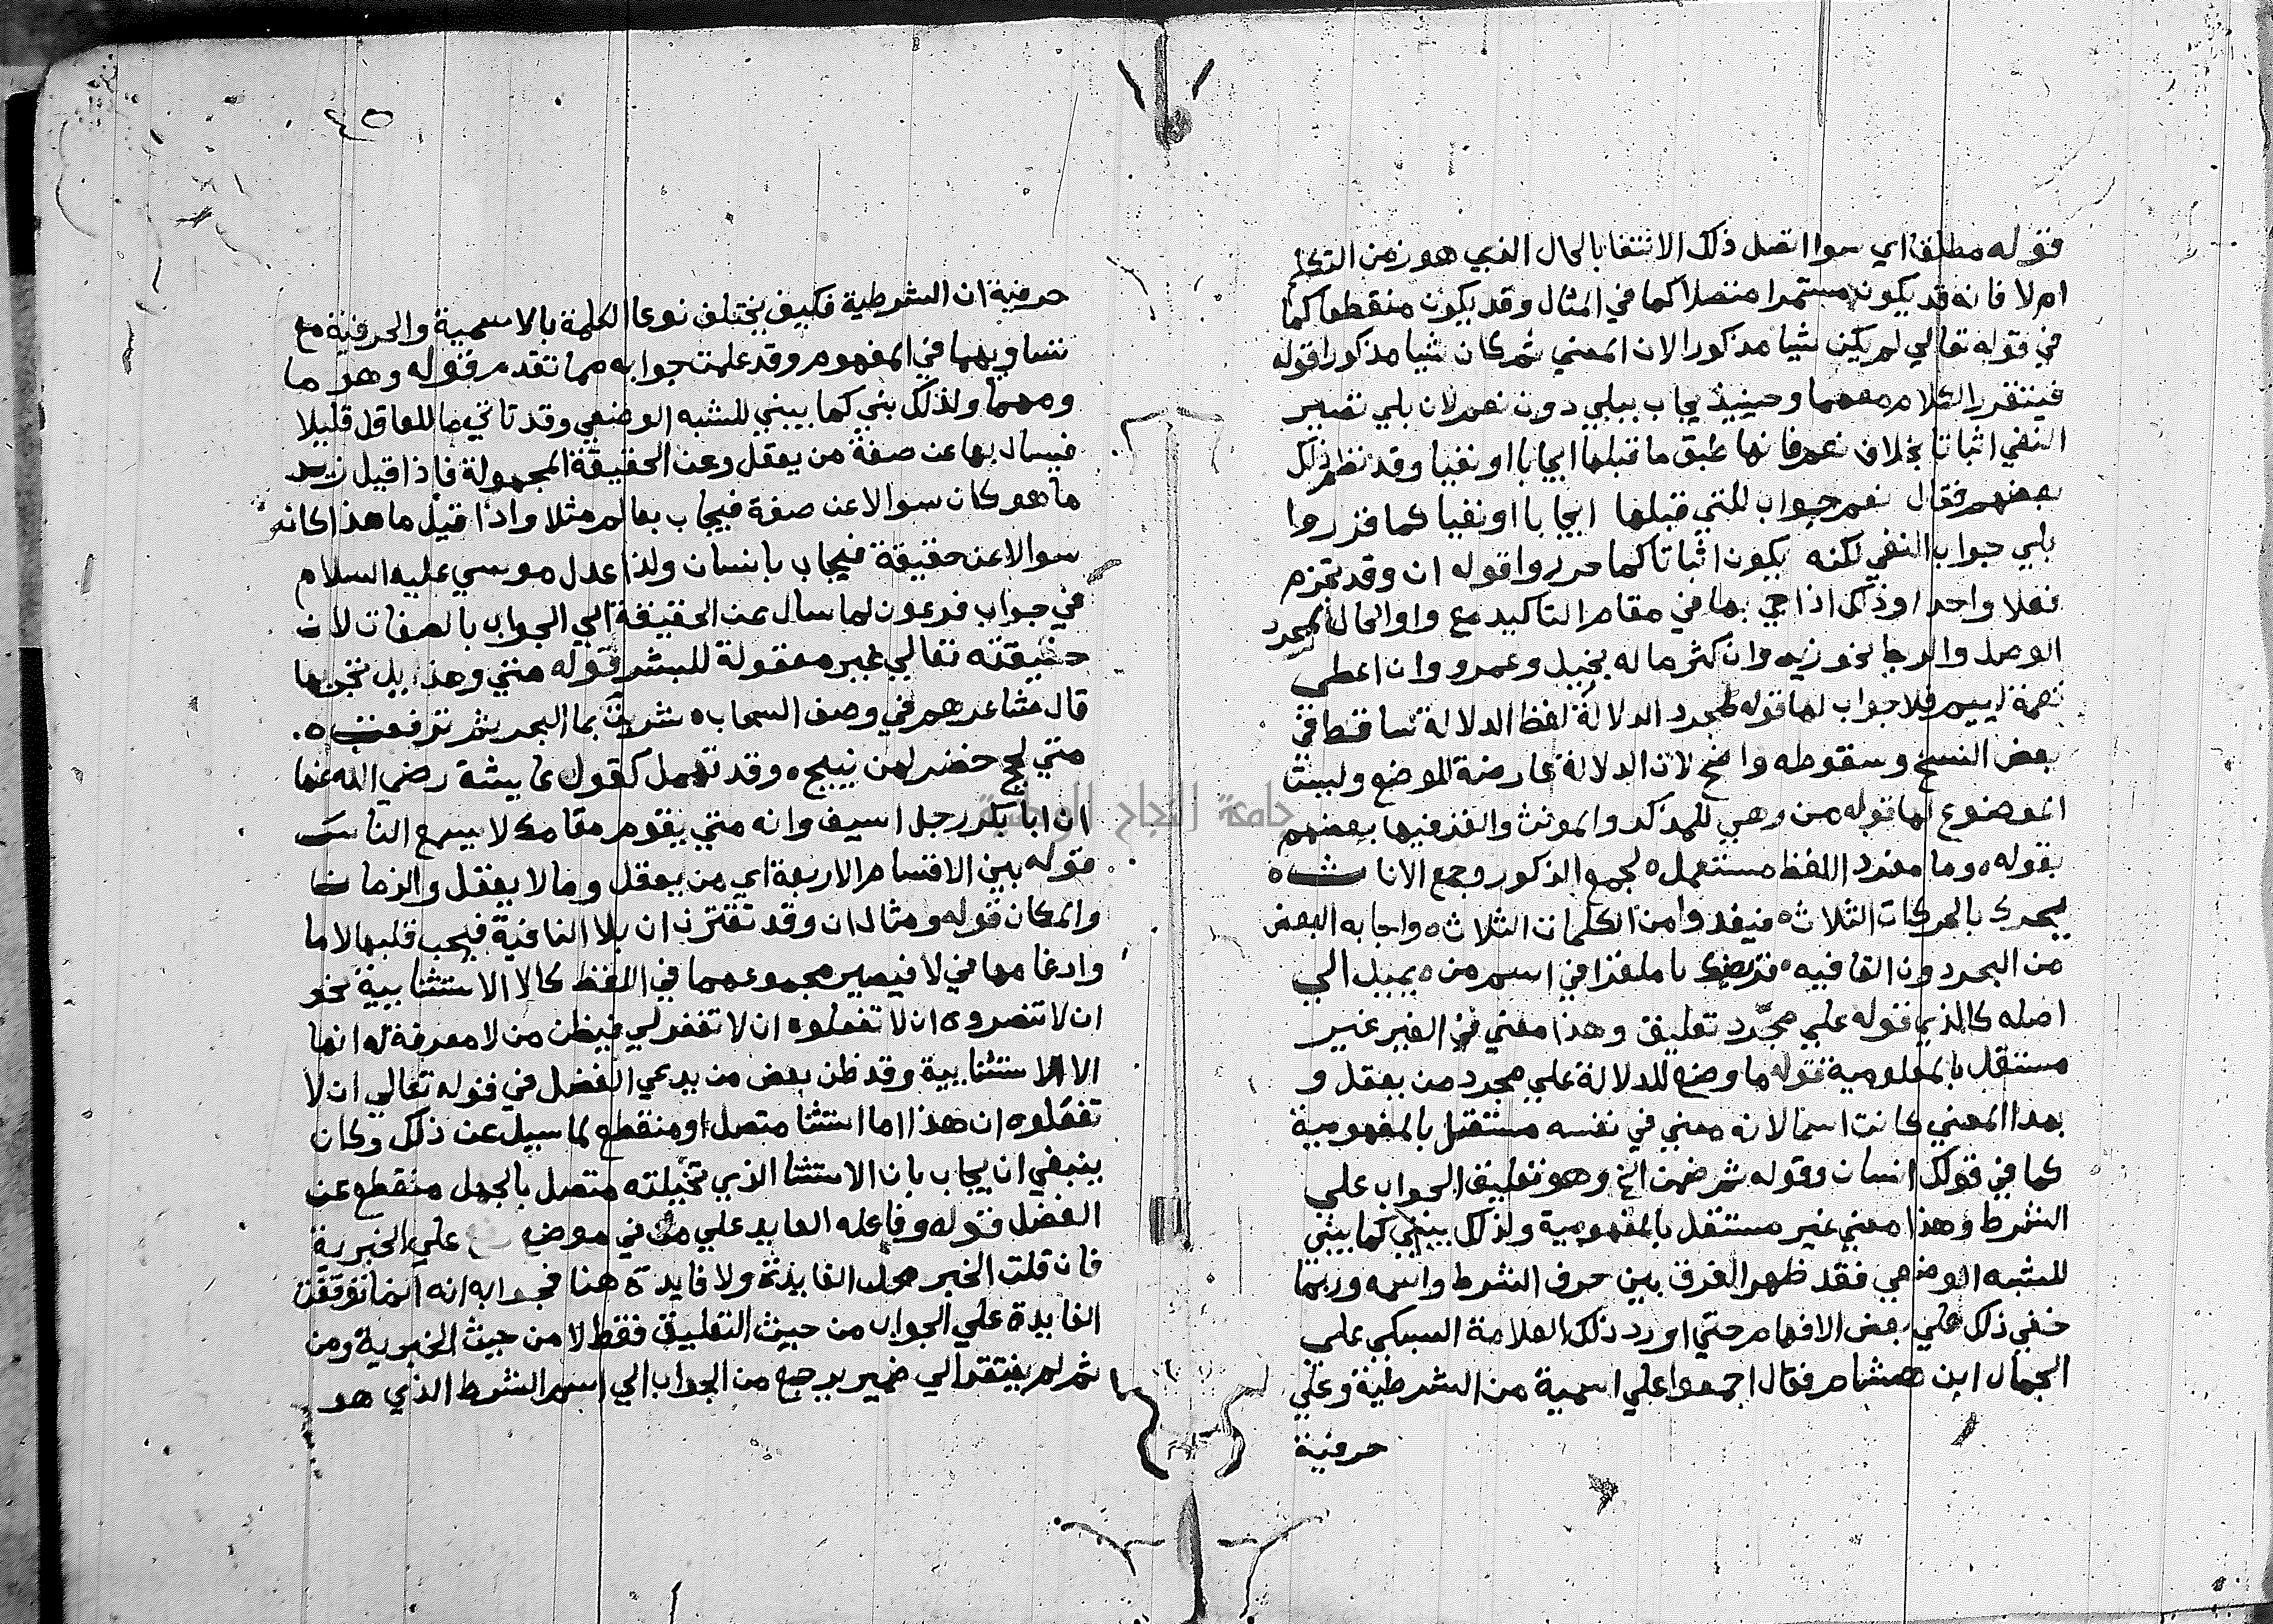 قوله مطلقا اي سوا اتصل ذلك الانتفا بالحال الذي هو زمن التكلم
ام لا فانه قد يكون مستمرا متصلا كما في المثال وقد يكون منقطعا كما
في قوله تعالي لم يكن شيا مذكورا لان المعني ثم كان شيا مذكورا قوله
فيتقرر الكلام معهما وحينيذ يجاب ببلي دون نعم لان بلي تصير
النفي اثباتا بخلاف نعم فانها طبق ما قبلها ايجابا او نفيا وقد نظم ذلك
بعضهم فقال نعم جواب للتي قبلها ايجابا او نفيا كما قرروا
بلي جواب النفي لكنه يكون اثباتا كما حرروا قوله ان وقد تجزم
فعلا واحدا وذلك اذا جي بها في مقام التاكيد مع واو الحال لمجرد
الوصل والربط نحو زيد وان كثر ماله بخيل وعمرو وان اعطي
لييم فلا جواب لها قوله لمجرد الدلالة لفظ الدلالة ساقط في
بعض النسخ وسقوطه واضح لان الدلالة عارضة للوضع وليست
الموضوع لها قوله من وهي للمذكر والمونث والغز فيها بعضهم
بقوله ه وما مفرد اللفظ مستعمل ه لجمع الذكور وجمع الاناث ه
يحرك بالحركات الثلاث ه فيغدوا من الكلمات الثلاث ه واجابه البعض
من البحر دون القافيه ه يا ملغزا في اسم من ه يميل الي
اصله كالذي قوله علي مجرد تعليق وهذا معني في الغير غير
مستقل بالمعلومية قوله ما وضع للدلالة علي مجرد من يعقل و
بهذا المعني كانت اسما لانه معني في نفسه مستقل بالمفهومية
كما في قولك انسان وقوله ثم ضمن الخ وهو تعليق الجواب علي
الشرط وهذا معني غير مستقل بالمفهومية ولذلك يبني كما يبني
للشبه الوضعي فقد ظهر الفرق بين حرف الشرط واسمه وربما
خفي ذلك علي بعض الافهام حتي اورد ذلك العلامة السبكي علي
الجمال ابن هشام فقال اجمعوا علي اسمية من الشرطية وعلي
حرفية
٤٥
حرفية ان الشرطية فكيف يختلف نوعا الكلمة بالاسمية والحرفية مع
تساويهما في المفهوم وقد علمت جوابه مما تقدم قوله وهو ما
ومهما ولذلك بني كما يبني للشبه الوضعي وقد تاتي ما للعاقل قليلا
فيسال بها عن صفة من يعقل وعن الحقيقة المجهولة فاذا قيل زيد
ما هو كان سوالا عن صفة فيجاب بعالم مثلا واذا قيل ما هذا كانه
سوالا عن حقيقة فيجاب بانسان ولذا عدل موسي عليه السلام
في جواب فرعون لما سال عن الحقيقة الي الجواب بالصفات لان
حقيقته تعالي غير معقولة للبشر قوله متي وهذيل تجر بها
قال شاعرهم في وصف السحاب ه شربن بما البحر ثم ترفعت ه
متي لجج خضر لهن نييج ه وقد تهمل كقول عايشة رضي الله عنها
ان ابا بكر رجل اسيف وانه متي يقوم مقامك لا يسمع الناس
قوله بين الاقسام الاربعة اي من يعقل وما لا يعقل والزمان
والمكان قوله ومثال ان وقد تقترن ان بلا النافية فيجب قلبها لاما
وادغامها في لا فيصير مجموعهما في اللفظ كالا الاستثنايية نحو
ان لا تنصروه ان لا تفعلوه ان لا تغفر لي فيظن من لا معرفة له انها
الا الاستثنايية وقد ظن بعض من يدعي الفضل في قوله تعالي ان لا
تفعلوه ان هذا اما استثنا متصل او منقطع لما سيل عن ذلك وكان
ينبغي ان يجاب بان الاستثنا الذي تخيلته متصل بالجهل منقطع عن
الفضل قوله وفاعله العايد علي من في موضع رفع علي الخبرية
فان قلت الخبر محل الفايدة ولا فايدة هنا فجوابه انه انما توقفت
الفايدة علي الجواب من حيث التعليق فقط لا من حيث الخبرية ومن
ثم لم يفتقر الي ضمير يرجع من الجواب الي اسم الشرط الذي هو
جامعة النجاح الوطنية